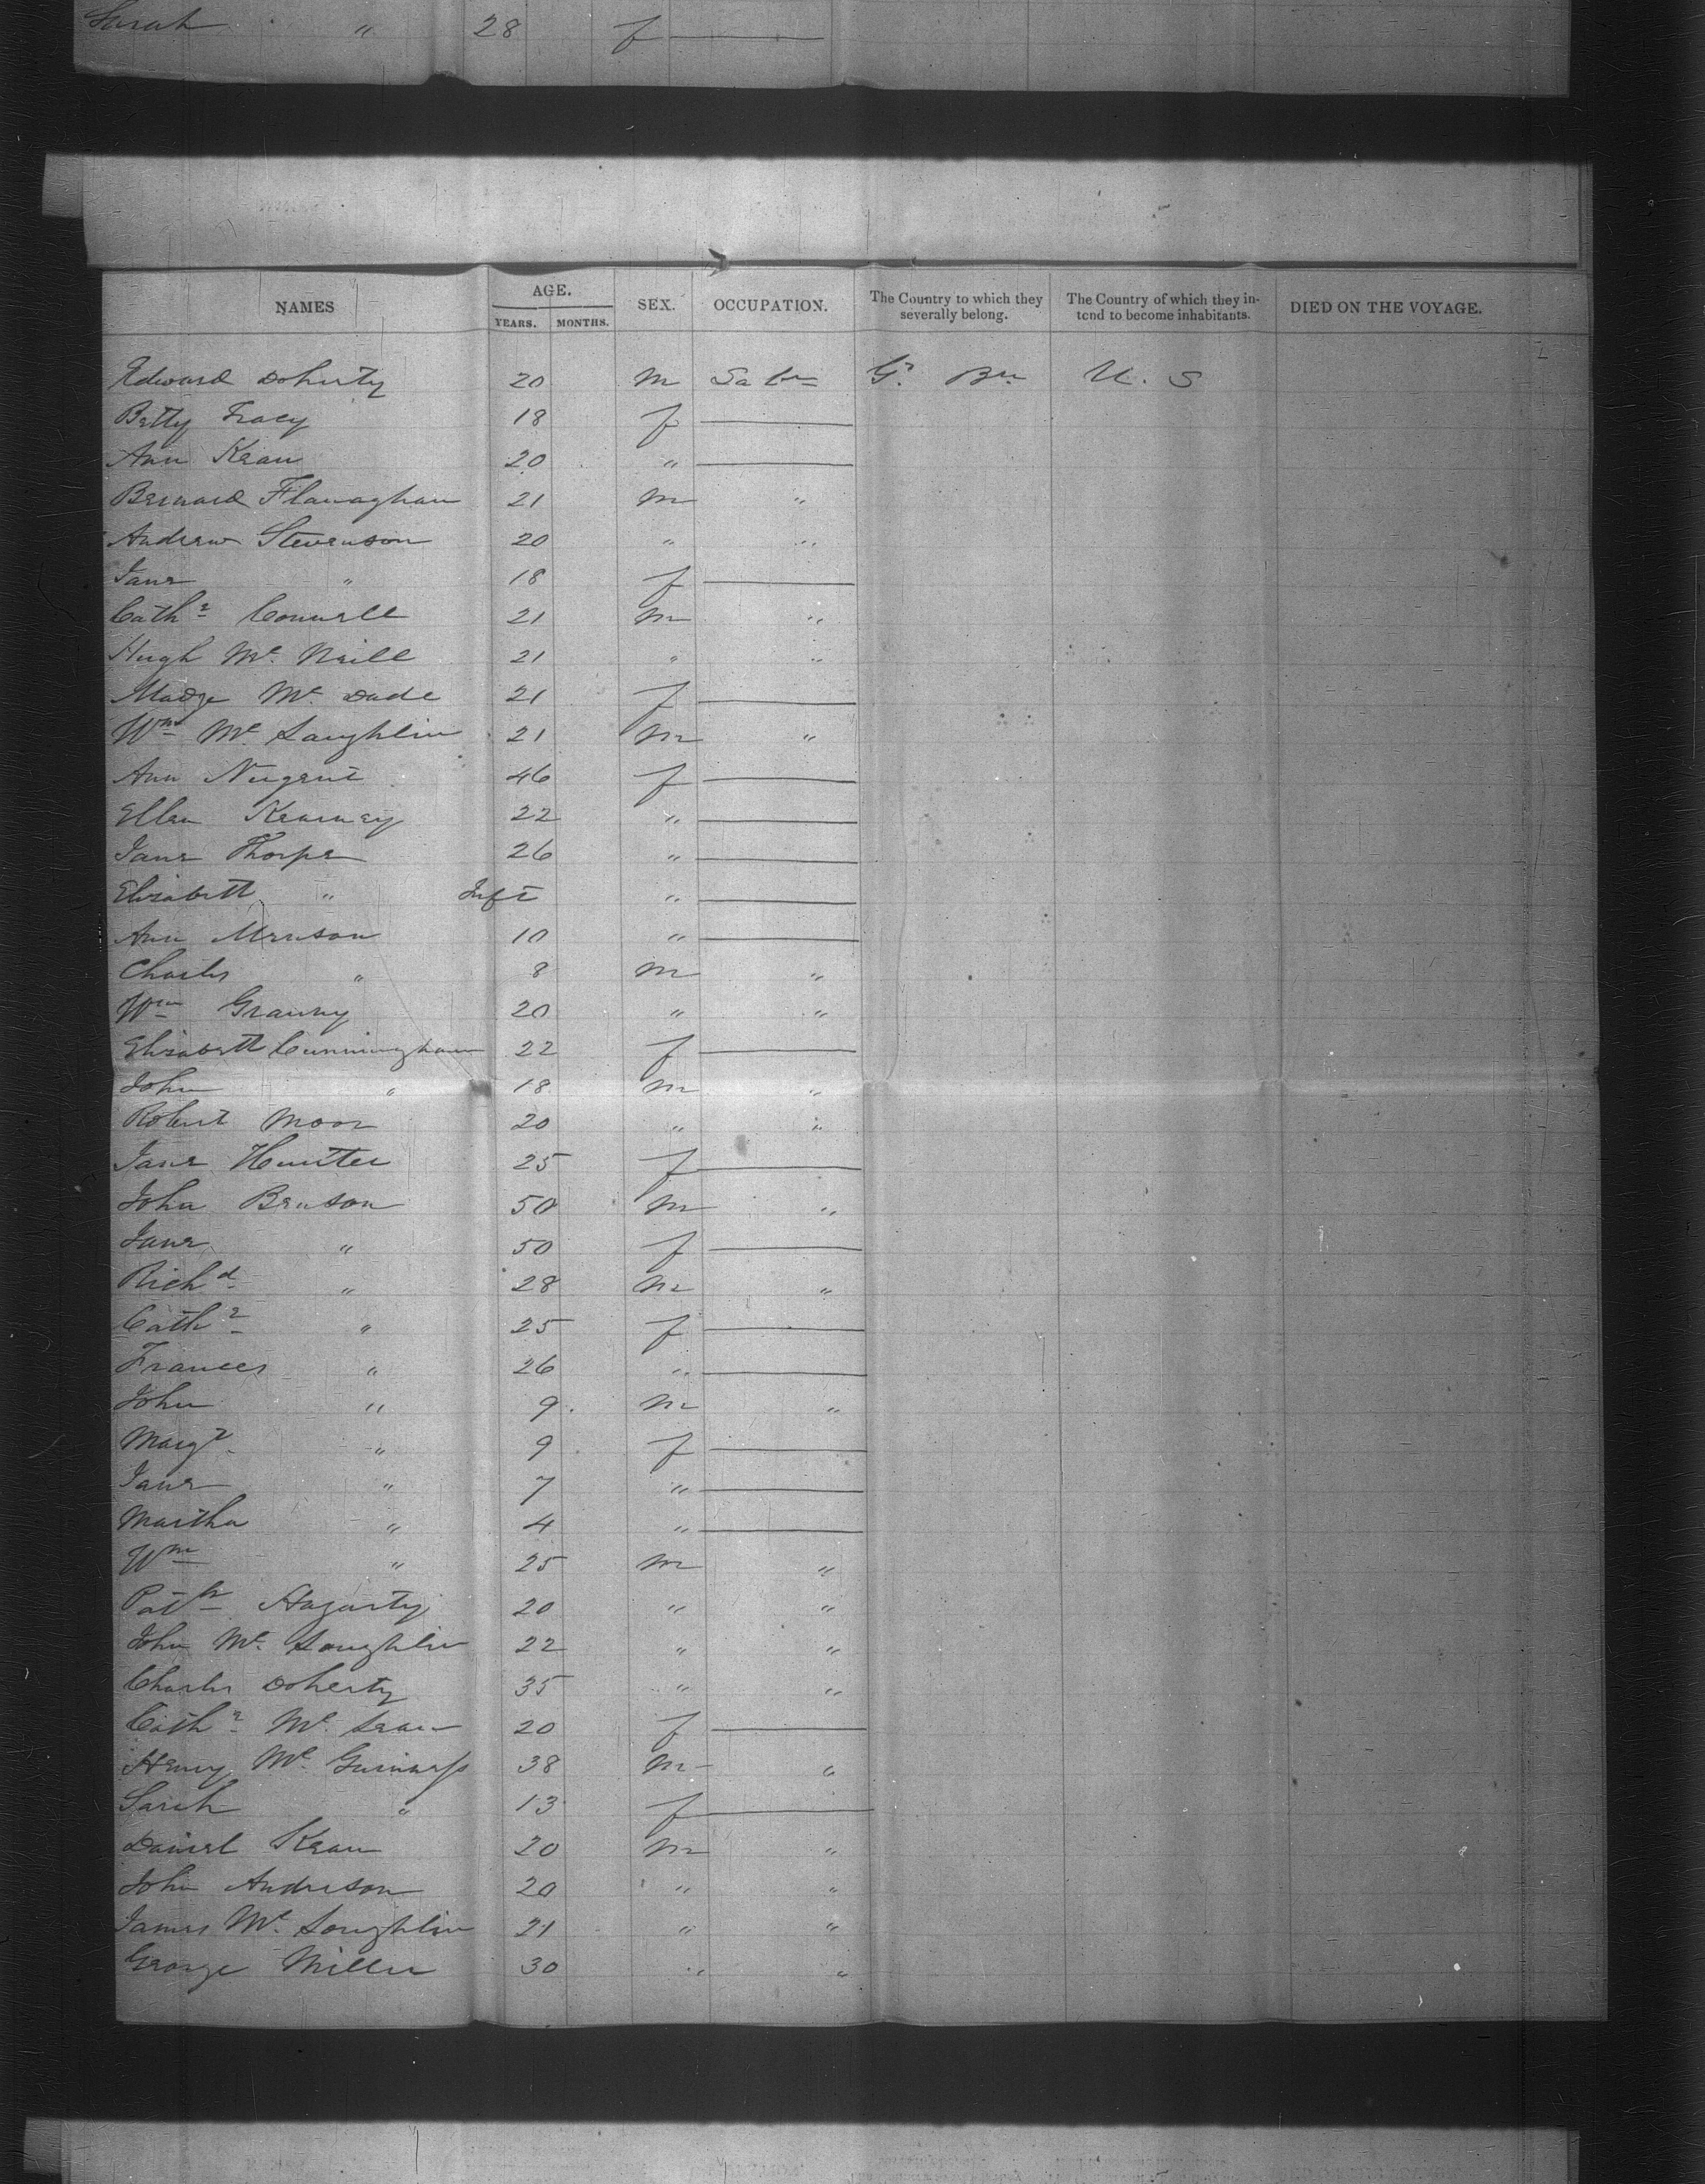 Sarah " 28 f
NAMES AGE. YEARS. MONTHS. SEX. OCCUPATION. The Country to which they severally belong. The Country of which they intend to become inhabitants. DIED ON THE VOYAGE.
Edward Doherty 20 m Gt. Bn U. S
Betty Tracy 18 f
Ann Kean 20 "
Bernard Flanaghan 21 m "
Andrew Stevenson 20 " "
Jane " 18 f
Cathe Connell 21 m "
Hugh Mc. Neill 21 " "
Madge Mc. Dade 21 f
Wm Mc. Laughlin 21 m "
Ann Nugent 46 f
Ellen Kearney 22 "
Jane Thorpe 26 "
Elizabeth " Inft "
Ann Menson 10 "
Charles " 8 m "
Wm Granny 20 " "
Elizabeth Cunningham 22 f
John " 18 m "
Robert Moor 20 " "
Jane Hunter 25 f
John Benson 50 m "
Jane " 50 f
Richd " 28 m "
Cathe " 25 f
Frances " 26 "
John " 9 m "
Margt " 9 f
Jane " 7 "
Martha " 4 "
Wm " 25 m "
Patk Hagarty 20 " "
John Mc. Loughlin 22 " "
Charles Doherty 35 " "
Cathe Mc. 20 f
Henry Mc. Guinness 38 m "
Sarah " 13 f
Daniel Kean 20 m "
John Anderson 20 " "
James Mc. Loughlin 21 " "
George Miller 30 " "